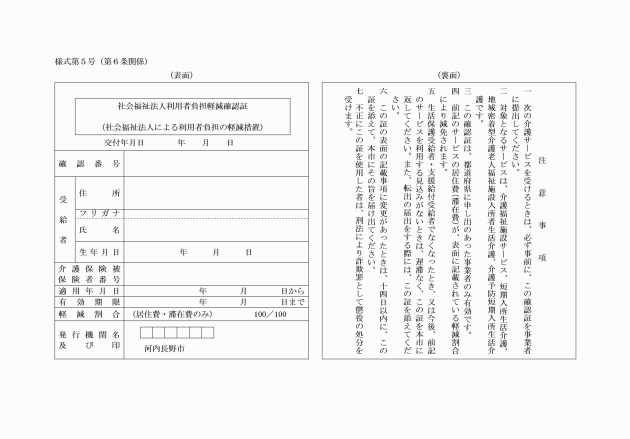 様式第５号（第６条関係）
（表面）
社会福祉法人利用者負担軽減確認証
（社会福祉法人による利用者負担の軽減措置）
交付年月日　　年　月　日
確認番号
受給者
住所
フリガナ
氏名
生年月日　　年　月　日
介護保険被
保険者番号
適用年月日　　年　月　日から
有効期限　　年　月　日まで
軽減割合　（居住費・滞在費のみ）　100／100
発行機関名
及び印
河内長野市
（裏面）
注意事項
一　次の介護サービスを受けるときは、必ず事前に、この確認証を事業者
に提出してください。
二　対象となるサービスは、介護福祉施設サービス、短期入所生活介護、
地域密着型介護老人福祉施設入所者生活介護、介護予防短期入所生活介
護です。
三　この確認証は、都道府県に申し出のあった事業者のみ有効です。
四　前記のサービスの居住費（滞在費）が、表面に記載されている軽減割合
により減免されます。
五　生活保護受給者・支援給付受給者でなくなったとき、又は今後、前記
のサービスを利用する見込みがないときは、遅滞なく、この証を本市に
返してください。また、転出の届出をする際には、この証を添えてくだ
さい。
六　この証の表面の記載事項に変更があったときは、十四日以内に、この
証を添えて、本市にその旨を届け出てください。
七　不正にこの証を使用した者は、刑法により詐欺罪として懲役の処分を
受けます。